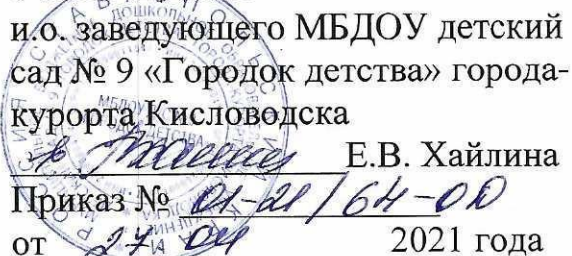 и.о. заведующего МБДОУ детский
сад № 9 «Городок детства» города-
курорта Кисловодска
Е.В. Хайлина
Приказ № 01-21/64-ОД
от 27 04 2021 года